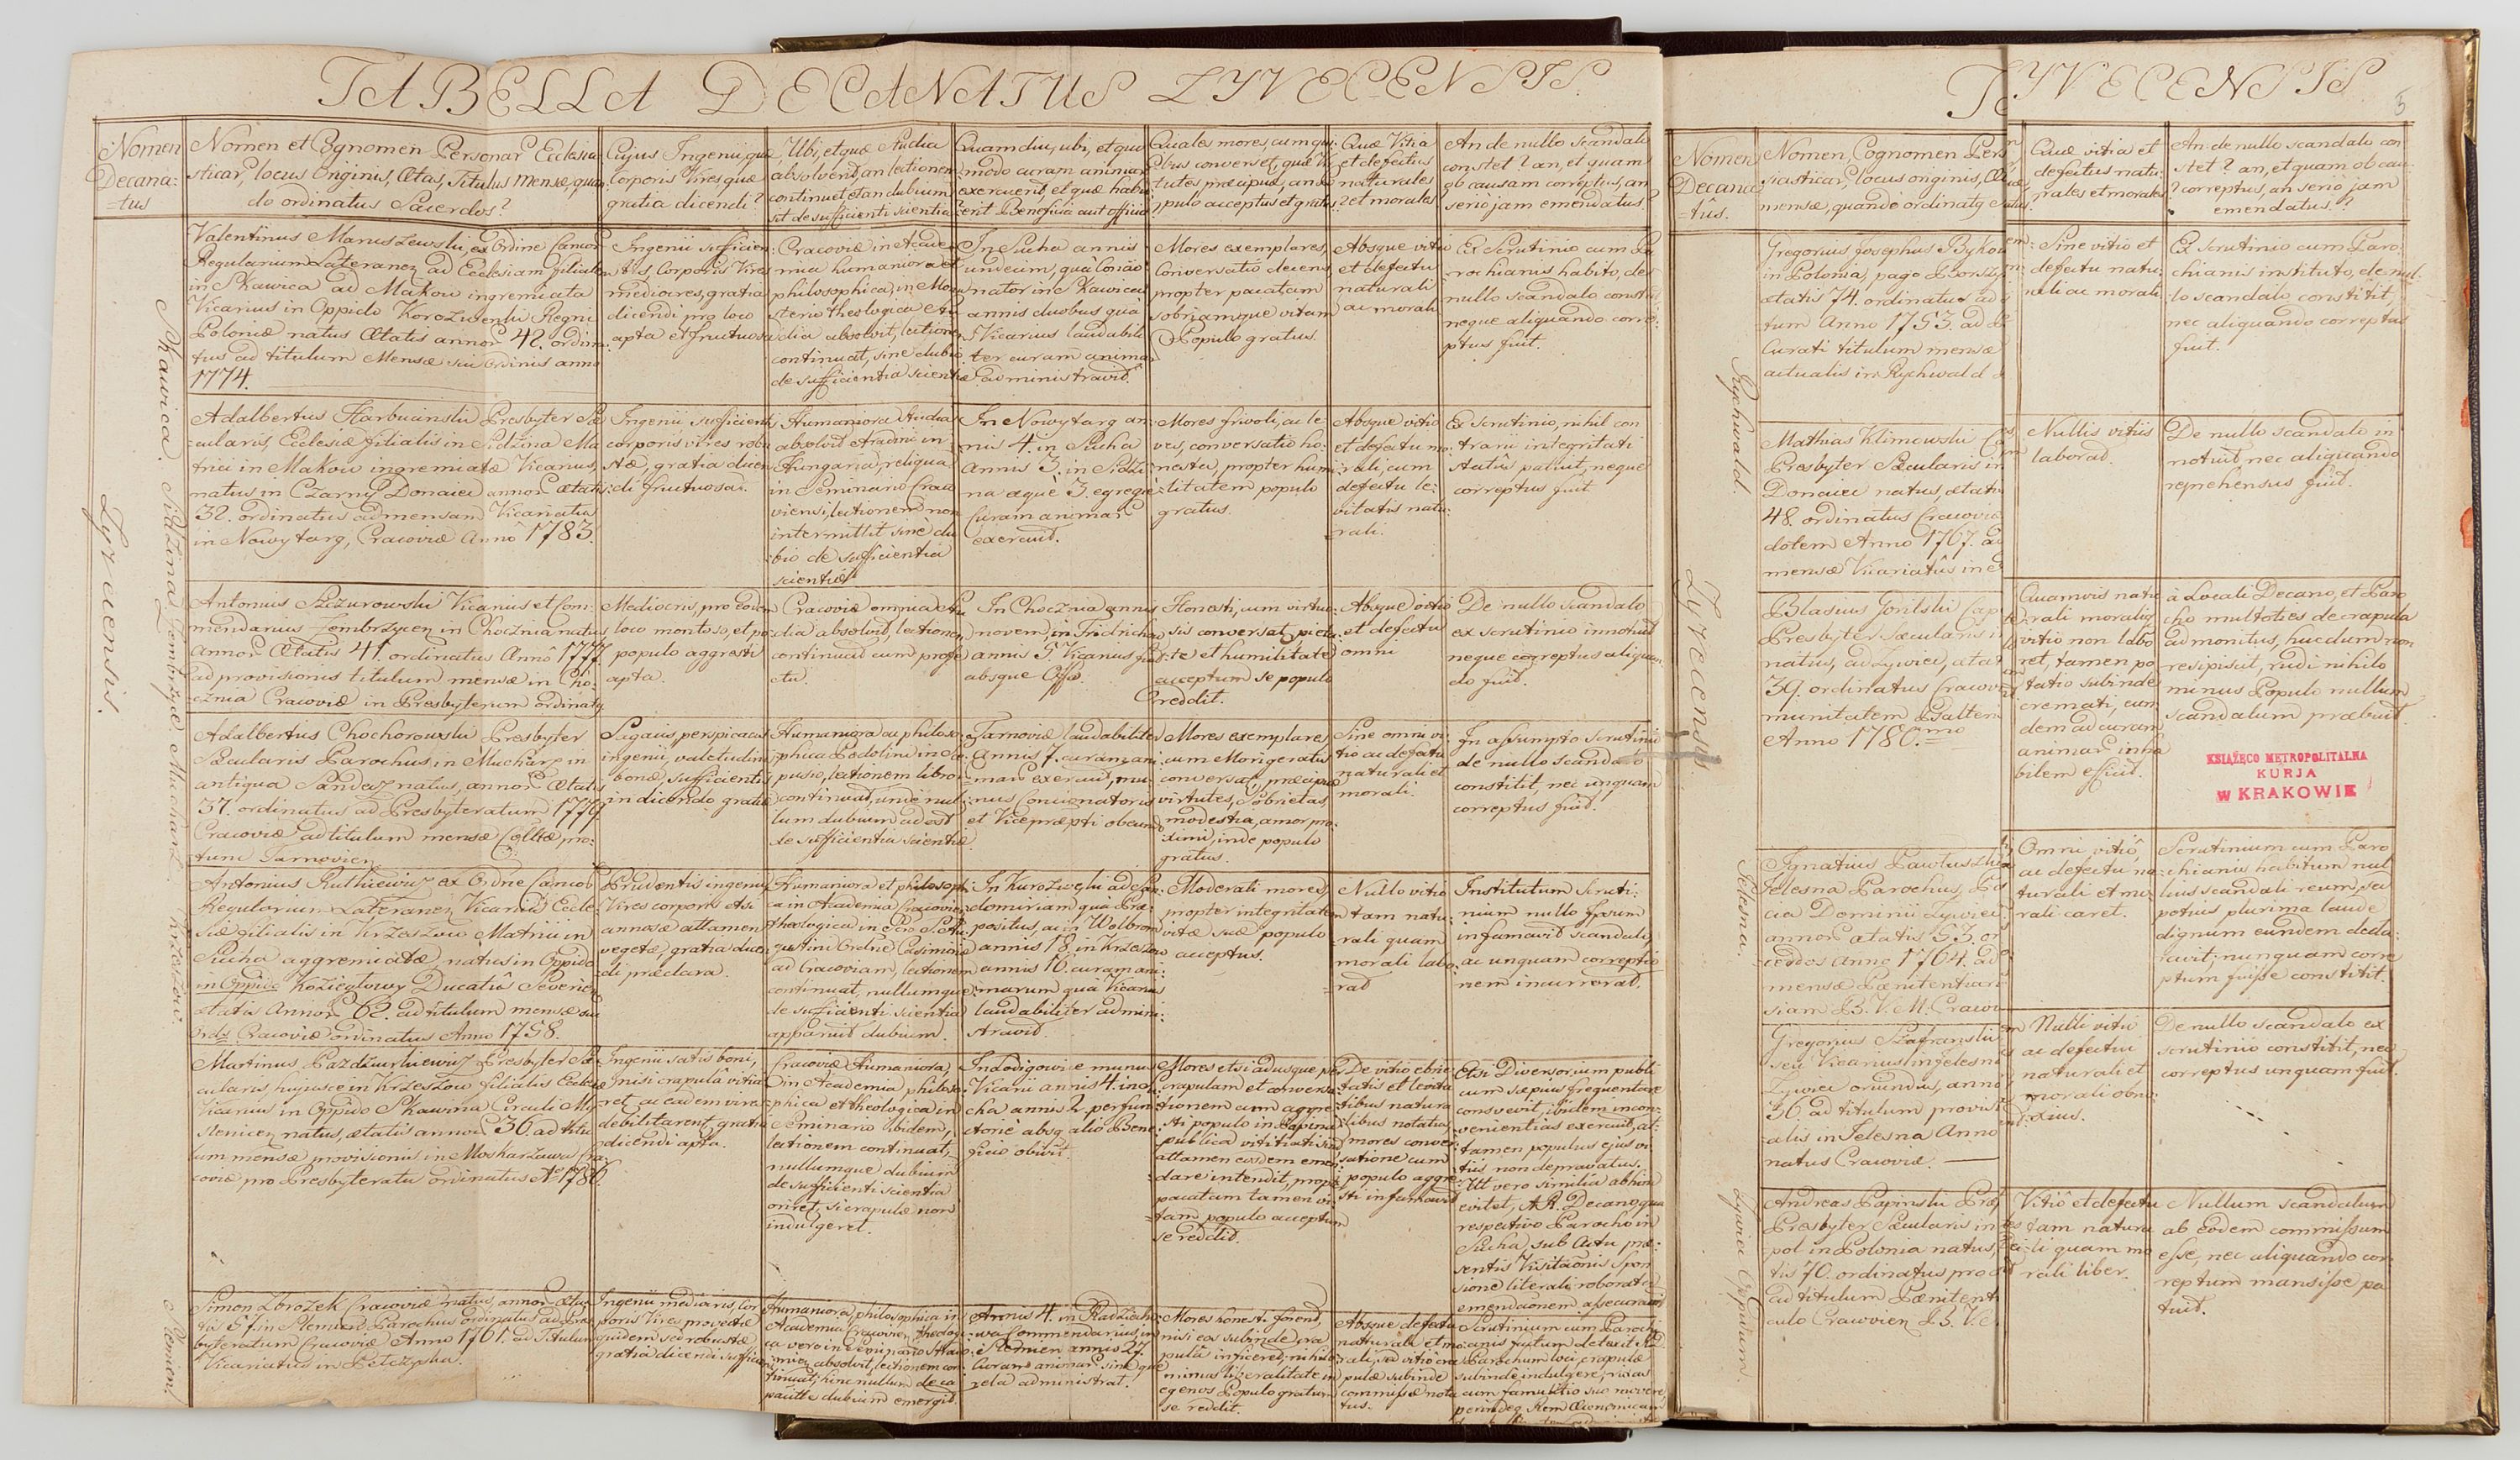 TABELLA DECANATUS ZYVECENSIS.
Nomen
Decana=
=tus
Nomen et Cognomen Personar Ecclesia
sticar, locus Originis, Ætas, Titulus Mensæ, quan
do ordinatus Sacerdos?
Cujus Ingenii, quæ
Corporis Vires, quæ
gratia dicendi?
Ubi, et quæ Studia
absolverit, an lectionem
continuet et an dubium
sit de sufficienti scientia
Quamdiu, ubi, et quo
modo curam animar
exercuerit, et quæ habu
erit Beneficia aut officia
Quales mores, cum qui
bus conversetur, quæ Vir
tutes præcipuæ, an
pulo acceptus et gratus?
Quæ Vitia
et defectus
naturales
et morales
An de nullo scandalo
constet? an, et quam
ob causam correptus, an
serio jam emendatus?
Skawica.
Valentinus Maruszewski, ex Ordine Canon
Regularium Lateranen ad Ecclesiam filialem
in Skawica ad Makow ingremiata
Vicarius in Oppido Korozwenki Regni
Poloniæ natus Ætatis annor 42. ordina
tus ad titulum Mensæ sui Ordinis anno
1774.
Ingenii sufficien
tis, Corporis Vires
mediocres, gratia
dicendi pro loco
apta et fructuosa
Cracoviæ in Acade
mia humaniora et
philosophica, in Mona
sterio theologica stu
dia absolvit, lectionem
continuat, sine dubio
de sufficientia scientiæ
In Sucha annis
undecim, quà Concio
nator in Skawica
annis duobus quà
Vicarius laudabili
ter curam animar
administravit.
Mores exemplares,
Conversatio decens
propter pacatam
sobriamque vitam
Populo gratus.
Absque vitio
et defectu
naturali
ac morali
Ex Scrutinio cum Pa
rochianis habito, de
nullo scandalo constat
neque aliquando corre
ptus fuit.
Sidzina
Adalbertus Harbucinski Presbyter Sæ
cularis, Ecclesiæ filialis in Sidzina Ma
trici in Makow ingremiatæ Vicarius,
natus in Czarny Donaiec annor ætatis
32. ordinatus ad mensam Vicariatus
in Nowytarg, Cracoviæ Annô 1783.
Ingenii sufficientis
corporis vires robu
stæ, gratia dicen
di fructuosa.
Humaniora studia
absolvit in
Hungaria, reliqua
in Seminario Craco
viensi, lectionem non
intermittit sine du
bio de sufficientia
scientiæ
In Nowytarg an
nis 4. in Sucha
annis 3. in Sidzi
na æquè 3. egregiè
Curam animar
exercuit.
Mores frivoli, ac le
ves, conversatio ho
nesta, propter humi
litatem populo
gratus.
Absque vitio
et defectu mo
rali, cum
defectu le=
vitatis natu
rali.
Ex scrutinio, nihil con
trarii integritati
status patuit, neque
correptus fuit.
Zyvecensis.
Zembrzyce
Antonius Szczurowski Vicarius et Com=
mendarius Zembrzycen, in Chocznia natus
Annor Ætatis 41. ordinatus Annô 1777.
ad provisionis titulum mensæ in Cho
cznia Cracoviæ in Presbyterum ordinatus
Mediocris, pro eodem
loco montoso, et po
populo aggresti
apta.
Cracoviæ omnia stu
dia absolvit, lectionem
continuat cum profe
ctu.
In Chocznia annis
novem, in Fridrichow
annis 5. Vicarius fuit
absque Offo.
Honesti, cum virtuo
sis conversat, pieta
te et humilitate
acceptum se populo
reddit.
Absque vitio
et defectu
omni
De nullo scandalo
ex scrutinio innotuit
neque correptus aliquan
do fuit.
Mucharz
Adalbertus Chochorowski Presbyter
Sæcularis Parochus in Mucharz in
antiqua Sandez natus, annor Ætatis
37. ordinatus ad Presbyteratum 1776
Cracoviæ ad titulum mensæ Colltæ, pro=
tunc Tarnovien.
Sagacis, perspicacis
ingenii, valetudinis
bonæ, sufficientis
in dicendo gratiæ
Humaniora ac philoso
phica Podolini in Sce
pusio, lectionem libror
continuat, unde nul
lum dubium adest
de sufficientia scientiæ.
Tarnoviæ laudabiliter
annis 7. curam ani
mar exercuit, mu
nus Concionatoris
et Vicepræpti obeundo
Mores exemplares,
cum Morigeratis
conversatur, præcipuæ
virtutes, Sobrietas,
modestia, amor pro
ximi, inde populo
gratus.
Sine omni vi
tio ac defectu
naturali et
morali.
In assumpto Scrutinio
de nullo scandalo
constitit, nec unquam
correptus fuit.
Krzeszow
Antonius Ruthiewicz ex Ordine Canoni
Regularium Lateranen Vicarius Eccle
siæ filialis in Krzeszow Matrici in
Sucha aggremiatæ natus in Oppido
in Oppido Koziegłowy Ducatûs Severien
ætatis Annor 62. ad titulum mensæ sui
Ordis Cracoviæ ordinatus Anno 1758.
Prudentis ingenii
Vires corporis etsi
annosæ attamen
vegetæ, gratia dicen
di præclara.
Humaniora et philosoph
ca in Academia Cracovien
theologica in S. Au
gustini Ordine Casimiriæ
ad Cracoviam, lectionem
continuat, nullumque
de sufficienti scientia
apparuit dubium.
In Kurozweki ad San
domiriam quà Præ
positus, ac in Wolbrom
annis 18. in Krzeszow
annis 10. curam ani
marum quà Vicarius
laudabiliter admini
stravit.
Moderati mores
propter integritatem
vitæ suæ populo
acceptus.
Nullo vitio
tam natu
rali quam
morali labo
rat
Institutum Scruti=
nium nullo ipsum
infamavit scandali,
ac unquam correptio
nem incurrerat.
Martinus Pazdziurkiewicz Presbyter Sæ
cularis, hujusce in Krzeszow filialis Ecclesiæ
Vicarius in Oppido Skawina Circuli My
slenicen natus, ætatis annor 36. ad titu
lum mensæ provisionis in Moskarzewa Cra
coviæ pro Presbyteratu ordinatus Aº 1786.
Ingenii satis boni,
nisi crapulâ vitia
ret, ac eadem vires
debilitarent, gratia
dicendi apta.
Cracoviæ Humaniora,
in Academia philoso
phica et theologica in
Seminario ibidem,
lectionem continuat,
nullumque dubium
de sufficienti scientia
oriret, si crapulæ non
indulgeret.
Indodigowice munus
Vicarii annis 4. in
cha annis 2. perfun
ctoriè absq alio Bene
ficio obivit.
Mores etsi adusque per
crapulam et conversa
tionem cum aggre
sti populo in Popina
publica vitiati sint
attamen eosdem emen
dare intendit, propter
pacatam tamen vi
tam populo acceptum
se reddit.
De vitio ebrie
tatis et levita
tibus natura
libus notatus,
mores conver
satione cum
populo aggre
sti infamavit
Etsi Diversorium publi
cum sæpius frequentare
consvevit, ibidem incon
venientias exercuit, at
tamen populus ejus vi
tiis non depravatus.
Ut vero similia abhinc
evitet, AR. Decano qua
respectivo Parocho in
Sucha, sub Actu præ
sentis Visitaonis Spon
sione literali roborata
emendaonem assecuravit
Slemien.
Simon Zbrozek Cracoviæ natus, annor Æta
tis 57. in Slemien Parochus Ordinatus ad Pres
byteratum Cracoviæ Anno 1761. ad Titulum
Vicariatus in Petczycha.
Ingenii mediocris, Cor
poris Vires provectæ
quidem sed robustæ
gratia dicendi sufficiens
Humaniora, philosophica in
Academia Cracovien, theologi
ca vero in Seminario
absolvit, lectionem con
tinuat, hinc nullum de ca
pacitte dubium emergit.
Annis 4. in Radziecho
wa Commendarius, in
Slemien annis 27.
Curam animar sine que
rela administrat.
Mores honesti forent,
nisi eos subinde cra
pulâ inficeret, nihilo
minus liberalitate in
egenos Populo gratum
se reddit.
Absque defectu
naturali et mo
rali, sed vitio cra
pulæ subinde
commissæ nota
tus.
Scrutinium cum Parochi
anis factum detexit
Parochum loci, crapulæ
subinde indulgere, rixas
cum famulitio suo movere,
perindeq Rem Œconomicam
T
YVECENSIS
5
Nomen
Decana
=tûs.
Nomen, Cognomen Pers
siasticar, locus originis, Æ
mensæ, quando ordinatq
Quæ vitia et
defectus natu
rales et morales
An de nullo scandalo con
stet? an, et quam ob cau
? correptus, an serio jam
emendatus?
Rychwald.
Gregorius Josephus Bykow
in Polonia, pago
ætatis 74. ordinatus ad
tum Anno 1753. ad
Curati titulum mensæ
actualis in Rychwald
Sine vitio et
defectu natu
rali ac morali
Ex scrutinio cum Paro
chianis instituto, de nul
lo scandalo constitit,
nec aliquando correptus
fuit.
Mathias Klimowski
Presbyter Sæcularis in
Donaiec natus, ætatis
48. ordinatus Cracoviæ
dotem Anno 1767. ad
mensæ Vicariatûs in
Nullis vitiis
laborat.
De nullo scandalo in
notuit, nec aliquando
reprehensus fuit.
Zyvecensis
Blasius Goritski Cap
Presbyter Sæcularis
natus, ad Zywiec, ætat
39. ordinatus Cracoviæ
munitatem Psalteri
Anno 1780.mo
Quamvis natu
rali moraliq
vitio non labo
ret, tamen po
tatio subinde
cremati, eun
dem ad curam
animar inha
bilem efficit.
à Locali Decano, et Paro
cho multoties de crapula
admonitus, hucdum non
resipiscit, rudi nihilo
minus Populo nullum
scandalum præbuit.
KSIĄŻĘCO METROPOLITALNA
KURJA
W KRAKOWIE
Jelesna.
Ignatius Pawlusz
Jelesna Parochus,
cia Dominii Zywiec
annor ætatis 53. or
cerdos Anno 1764. ad
mensæ Pœnitentiar
siam B. V. M. Cracov
Omni vitiô,
ac defectu na
turali et mo
rali caret.
Scrutinium cum Paro
chianis habitum nul
lius scandali reum, sed
potius plurima laude
dignum eundem decla=
ravit; nunquam corre
ptum fuisse constitit.
Gregorius Szafranski
seu Vicarius in Jelesna
Zywiec oriundus, anno
36. ad titulum provisi
alis in Jelesna Anno
natus Cracoviæ.
Nulli vitio
ac defectui
naturali et
morali obno
xius.
De nullo scandalo ex
scrutinio constitit, nec
correptus unquam fuit.
Zywiec Oppidum
Andreas Papinski Præ
Presbyter Sæcularis in
pol in Polonia natus,
tis 70. ordinatus pro
ad titulum Pœnitent
culo Cracovien B. V.
Vitiô et defectu
tam natura
li quam mo
rali liber.
Nullum scandalum
ab eodem commissum
esse, nec aliquando cor
reptum mansisse pa
tuit.